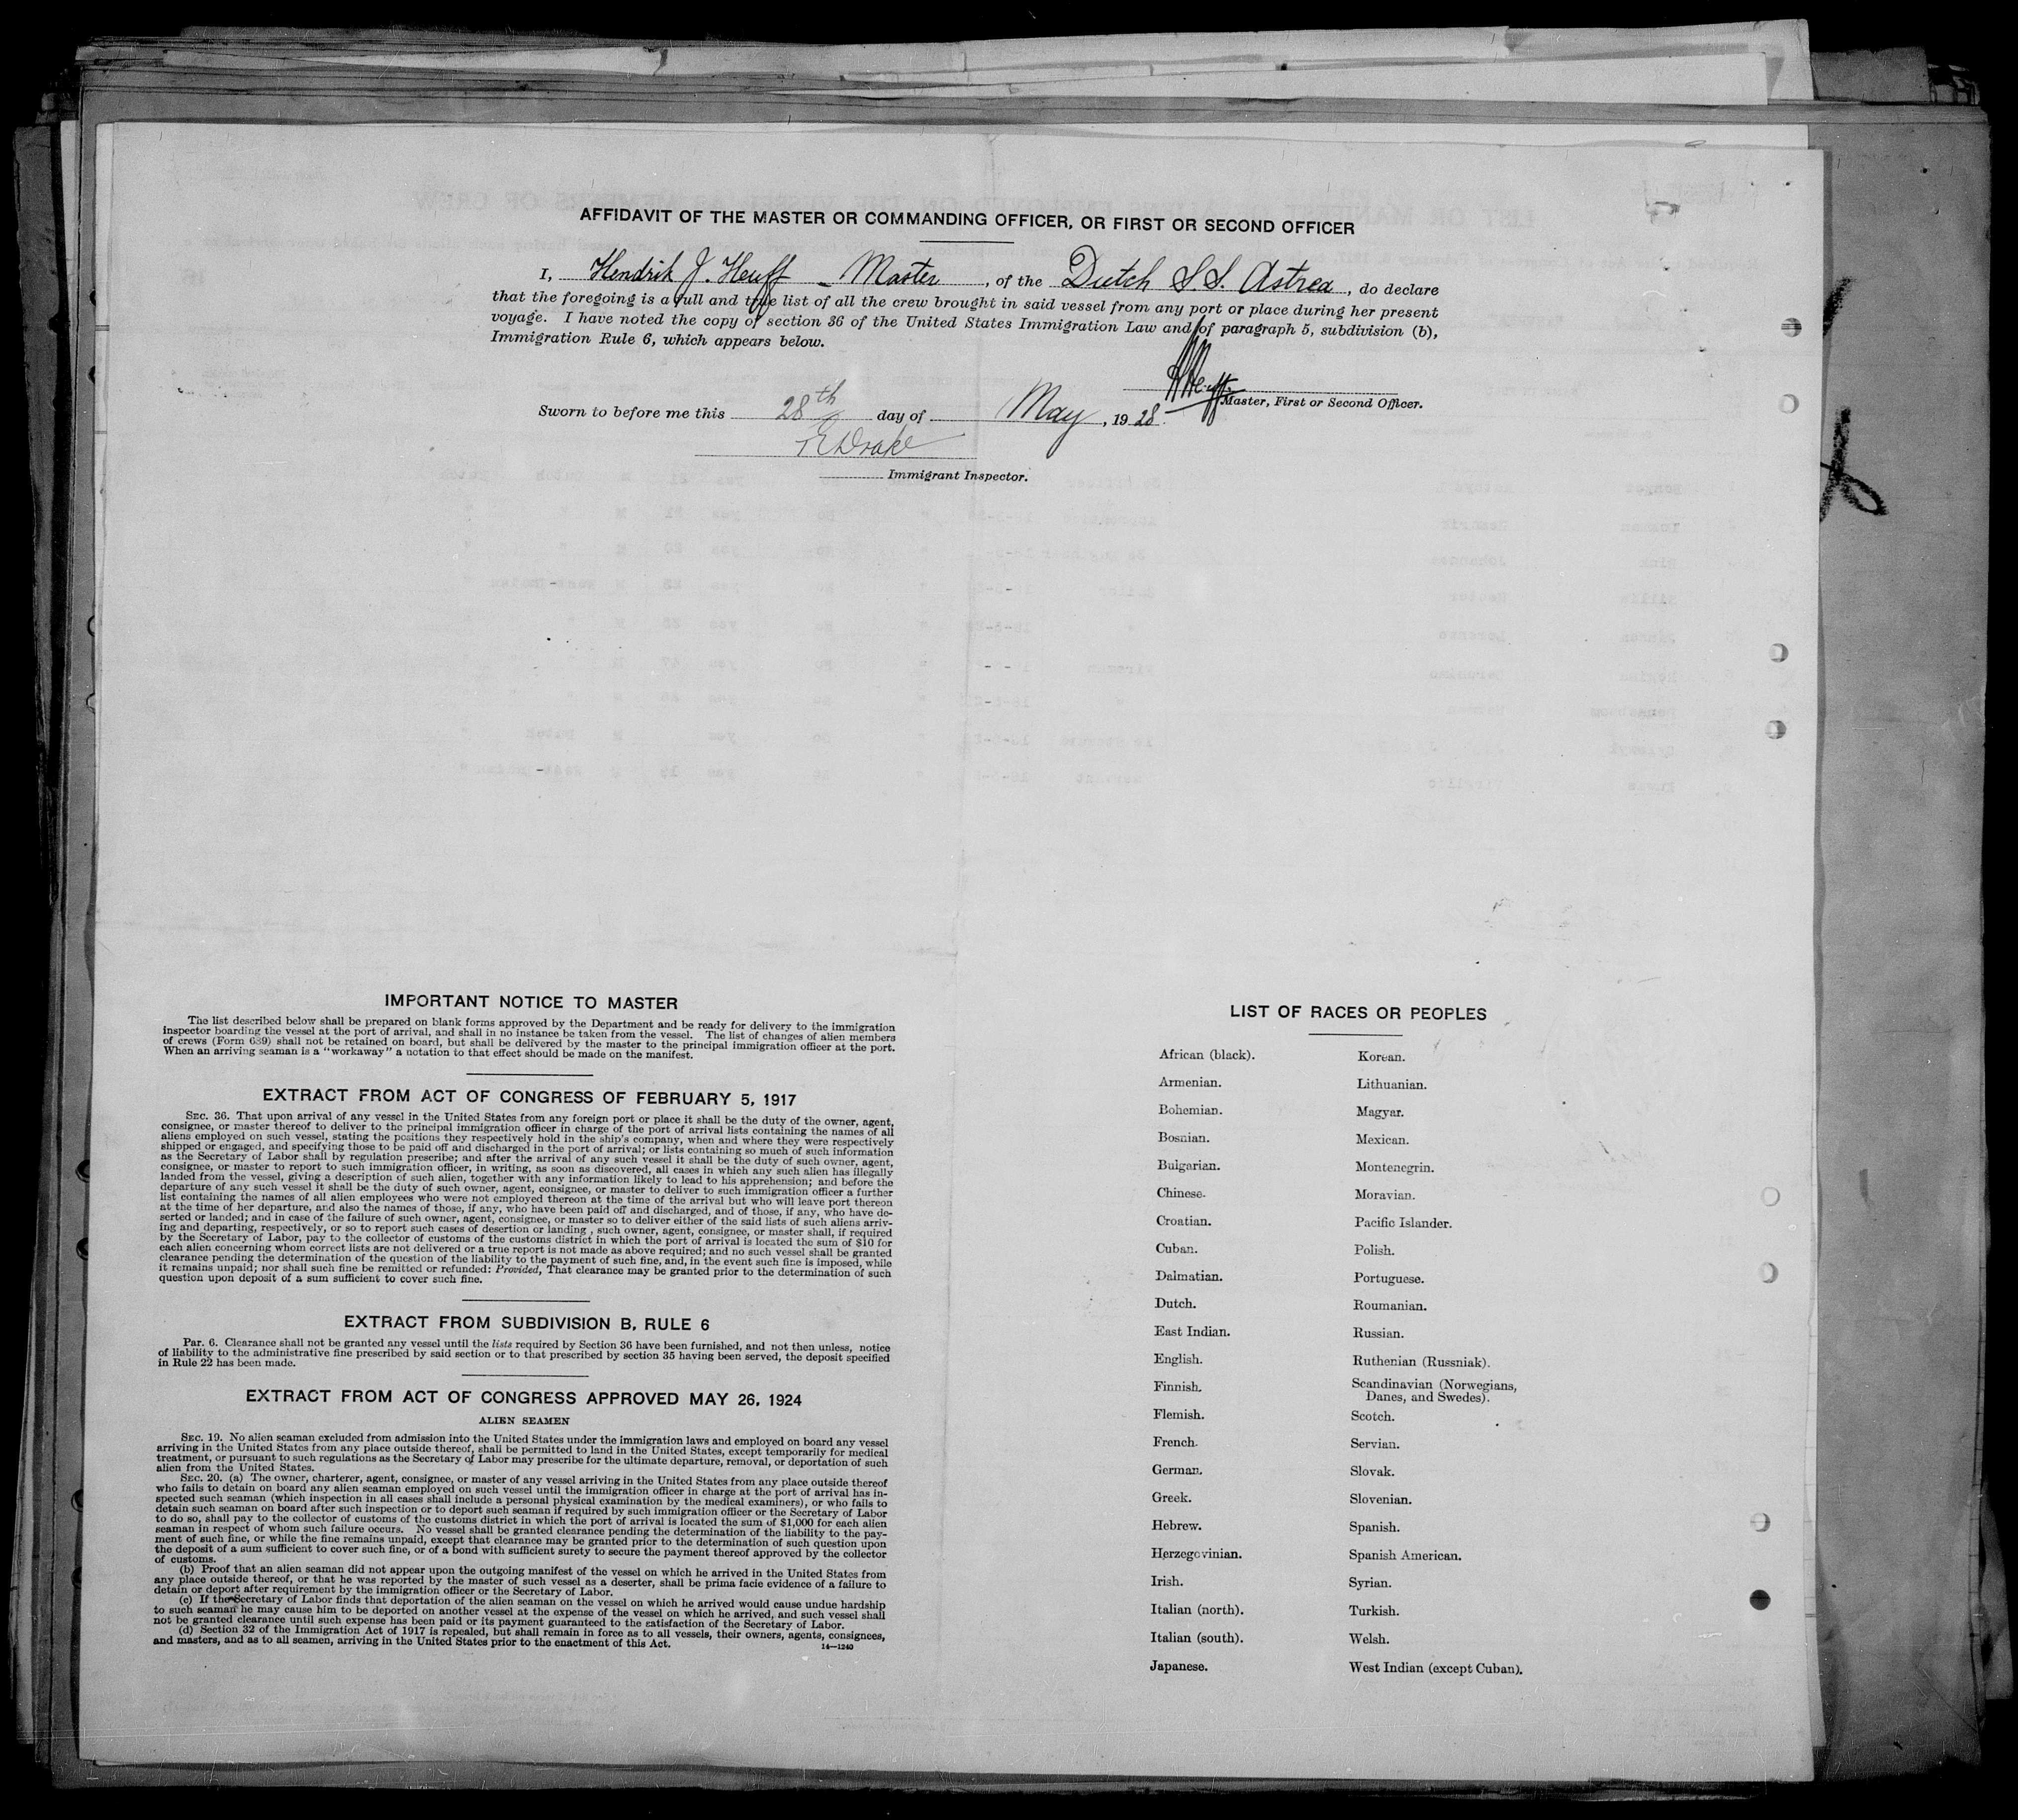 AFFIDAVIT OF THE MASTER OR COMMANDING OFFICER, OR FIRST OR SECOND OFFICER
I, Hendrik J. Heuff - Master, of the Dutch S.S. Astrea, do declare
that the foregoing is a full and true list of all the crew brought in said vessel from any port or place during her present
voyage. I have noted the copy of section 36 of the United States Immigration Law and of paragraph 5, subdivision (b),
Immigration Rule 6, which appears below.
HHeuff.
Master, First or Second Officer.
Sworn to before me this 28th day of May, 1928.
Drake
Immigrant Inspector.
IMPORTANT NOTICE TO MASTER
The list described below shall be prepared on blank forms approved by the Department and be ready for delivery to the immigration
inspector boarding the vessel at the port of arrival, and shall in no instance be taken from the vessel. The list of changes of alien members
of crews (Form 689) shall not be retained on board, but shall be delivered by the master to the principal immigration officer at the port.
When an arriving seaman is a "workaway" a notation to that effect should be made on the manifest.
EXTRACT FROM ACT OF CONGRESS OF FEBRUARY 5, 1917
SEC. 36. That upon arrival of any vessel in the United States from any foreign port or place it shall be the duty of the owner, agent,
consignee, or master thereof to deliver to the principal immigration officer in charge of the port of arrival lists containing the names of all
aliens employed on such vessel, stating the positions they respectively hold in the ship's company, when and where they were respectively
shipped or engaged, and specifying those to be paid off and discharged in the port of arrival; or lists containing so much of such information
as the Secretary of Labor shall by regulation prescribe; and after the arrival of any such vessel it shall be the duty of such owner, agent,
consignee, or master to report to such immigration officer, in writing, as soon as discovered, all cases in which any such alien has illegally
landed from the vessel, giving a description of such alien, together with any information likely to lead to his apprehension; and before the
departure of any such vessel it shall be the duty of such owner, agent, consignee, or master to deliver to such immigration officer a further
list containing the names of all alien employees who were not employed thereon at the time of the arrival but who will leave port thereon
at the time of her departure, and also the names of those, if any, who have been paid off and discharged, and of those, if any, who have de-
serted or landed; and in case of the failure of such owner, agent, consignee, or master so to deliver either of the said lists of such aliens arriv-
ing and departing, respectively, or so to report such cases of desertion or landing , such owner, agent, consignee, or master shall, if required
by the Secretary of Labor, pay to the collector of customs of the customs district in which the port of arrival is located the sum of $10 for
each alien concerning whom correct lists are not delivered or a true report is not made as above required; and no such vessel shall be granted
clearance pending the determination of the question of the liability to the payment of such fine, and, in the event such fine is imposed, while
it remains unpaid; nor shall such fine be remitted or refunded: Provided, That clearance may be granted prior to the determination of such
question upon deposit of a sum sufficient to cover such fine.
EXTRACT FROM SUBDIVISION B, RULE 6
Par. 6. Clearance shall not be granted any vessel until the lists required by Section 36 have been furnished, and not then unless, notice
of liability to the administrative fine prescribed by said section or to that prescribed by section 35 having been served, the deposit specified
in Rule 22 has been made.
EXTRACT FROM ACT OF CONGRESS APPROVED MAY 26, 1924
ALIEN SEAMEN
SEC. 19. No alien seaman excluded from admission into the United States under the immigration laws and employed on board any vessel
arriving in the United States from any place outside thereof, shall be permitted to land in the United States, except temporarily for medical
treatment, or pursuant to such regulations as the Secretary of Labor may prescribe for the ultimate departure, removal, or deportation of such
alien from the United States.
SEC. 20. (a) The owner, charterer, agent, consignee, or master of any vessel arriving in the United States from any place outside thereof
who fails to detain on board any alien seaman employed on such vessel until the immigration officer in charge at the port of arrival has in-
spected such seaman (which inspection in all cases shall include a personal physical examination by the medical examiners), or who fails to
detain such seaman on board after such inspection or to deport such seaman if required by such immigration officer or the Secretary of Labor
to do so, shall pay to the collector of customs of the customs district in which the port of arrival is located the sum of $1,000 for each alien
seaman in respect of whom such failure occurs. No vessel shall be granted clearance pending the determination of the liability to the pay-
ment of such fine, or while the fine remains unpaid, except that clearance may be granted prior to the determination of such question upon
the deposit of a sum sufficient to cover such fine, or of a bond with sufficient surety to secure the payment thereof approved by the collector
of customs.
(b) Proof that an alien seaman did not appear upon the outgoing manifest of the vessel on which he arrived in the United States from
any place outside thereof, or that he was reported by the master of such vessel as a deserter, shall be prima facie evidence of a failure to
detain or deport after requirement by the immigration officer or the Secretary of Labor.
(c) If the Secretary of Labor finds that deportation of the alien seaman on the vessel on which he arrived would cause undue hardship
to such seaman he may cause him to be deported on another vessel at the expense of the vessel on which he arrived, and such vessel shall
not be granted clearance until such expense has been paid or its payment guaranteed to the satisfaction of the Secretary of Labor.
(d) Section 32 of the Immigration Act of 1917 is repealed, but shall remain in force as to all vessels, their owners, agents, consignees,
and masters, and as to all seamen, arriving in the United States prior to the enactment of this Act.
14—1240
LIST OF RACES OR PEOPLES
African (black).
Armenian.
Bohemian.
Bosnian.
Bulgarian.
Chinese.
Croatian.
Cuban.
Dalmatian.
Dutch.
East Indian.
English.
Finnish.
Flemish.
French.
German.
Greek.
Hebrew.
Herzegovinian.
Irish.
Italian (north).
Italian (south).
Japanese.
Korean.
Lithuanian.
Magyar.
Mexican.
Montenegrin.
Moravian.
Pacific Islander.
Polish.
Portuguese.
Roumanian.
Russian.
Ruthenian (Russniak).
Scandinavian (Norwegians,
Danes, and Swedes).
Scotch.
Servian.
Slovak.
Slovenian.
Spanish.
Spanish American.
Syrian.
Turkish.
Welsh.
West Indian (except Cuban).